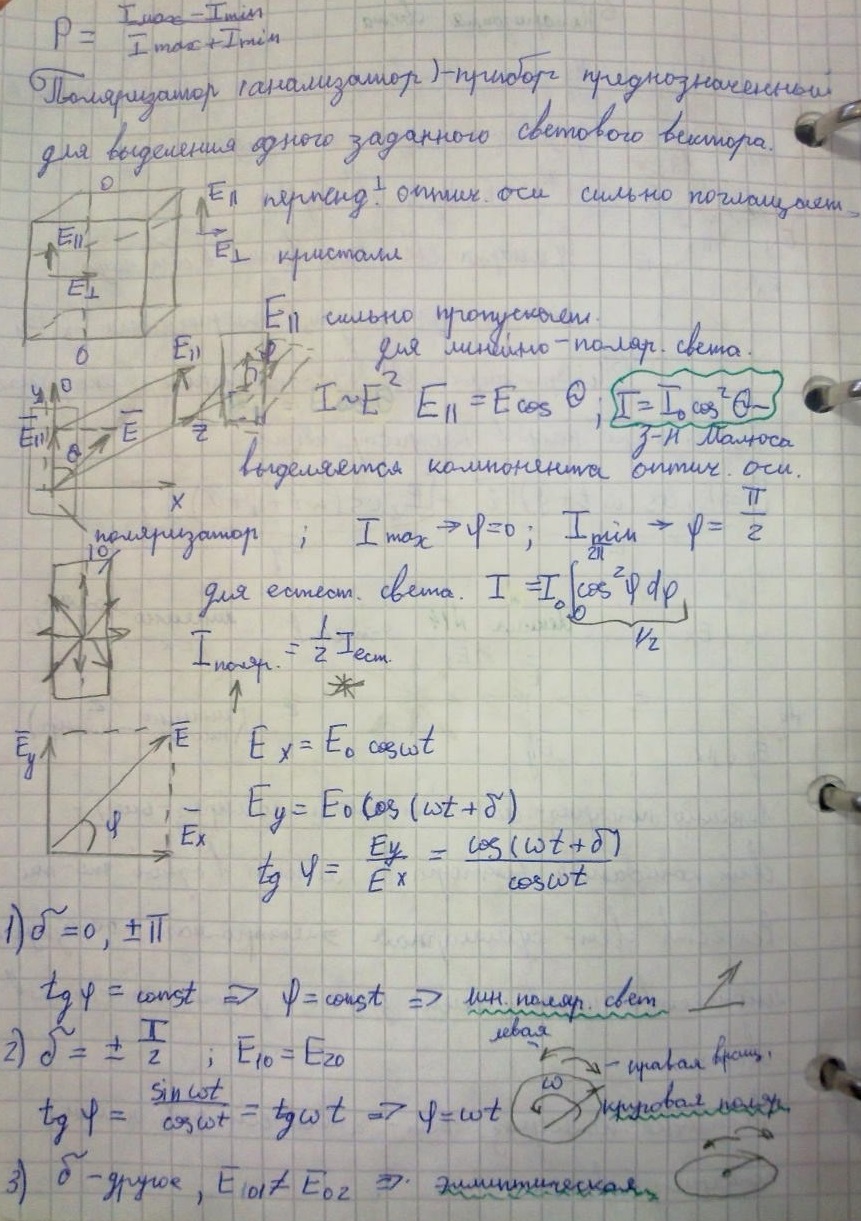 P = (Imax − Imin) / (Imax + Imin)
Поляризатор (анализатор) - прибор предназначенный
для выделения одного заданного светового вектора.
O E|| перпенд. ⊥ оптич. оси сильно поглощает
E|| E⊥ кристалл
E⊥
E|| сильно пропускает.
O E|| φ для линейно-поляр. света.
y O E|| E θ z I ~ E² E|| = E cos θ ; I = I₀ cos² θ
з-н Малюса
x выделяется компонента оптич. оси.
поляризатор ; I max → φ = 0 ; I min → φ = π/2
O для естест. света. I = I₀ ∫₀^2π cos² φ dφ
1/2
I поляр. = 1/2 I ест.
Ey E Ex = E₀ cos ωt
φ Ex Ey = E₀ cos (ωt + δ)
tg φ = Ey / Ex = cos (ωt + δ) / cos ωt
1) δ = 0, ± π
tg φ = const => φ = const => лин. поляр. свет
левая
2) δ = ± π/2 ; E₁₀ = E₂₀ - правая вращ.
tg φ = sin ωt / cos ωt = tg ωt => φ = ωt ω круговая поляр.
3) δ - другое, E₁₀₁ ≠ E₀₂ => эллиптическая